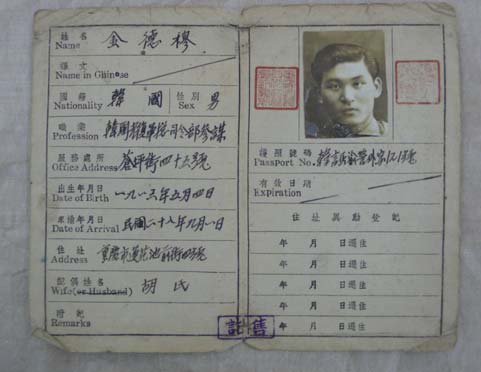 姓名
Name
金德穆
譯文
Name in Chinese
國籍 韓國 性別 男
Nationality Sex
職業
Profession
韓國光復軍總司令部參謀
服務處所
Office Address
出生年月日 一九一三年五月四日
Date of Birth
來渝年月日 民國二十八年九月一日
Date of Arrival
住址
Address
重慶市蓮花池前街四號
配偶姓名 胡氏
Wife(or Husband)
附記
Remarks
護照號碼
Passport No.
有效日期
Expiration
住址異動登記
年 月 日遷往
年 月 日遷往
年 月 日遷往
年 月 日遷往
年 月 日遷往